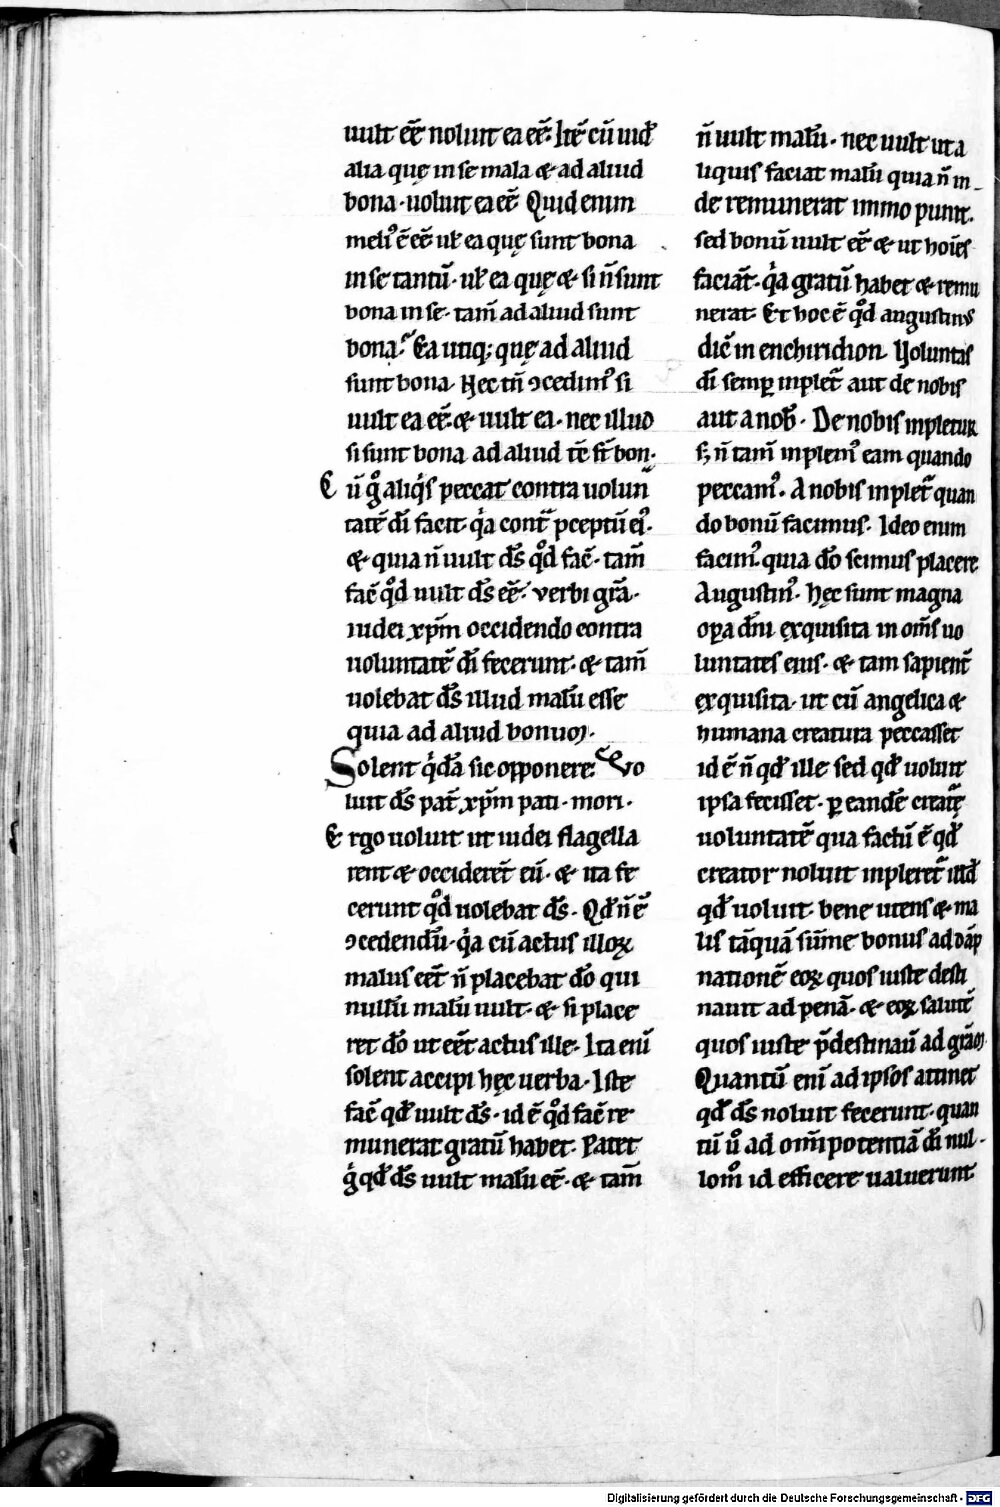 uult eē noluit ea eē. Itē cū uid᷑
alia quę in se mala & ad aliud
bona. uoluit ea eē Quid enim
meli᷒ ē eē ul᷑ ea quę sunt bona
in se tantū. ul᷑ ea quę & si n̄ sunt
bona in se. tam̄ ad aliud sunt
bona. Ea utiq; quę ad aliud
sunt bona. Hec tn̄ ꝯcedim᷒ si
uult ea eē. & uult ea. nec illud
si sunt bona ad aliud tc̄ st̄ bon.
Cū gͦ aliqͥs peccat contra uolun
tatē dī facit qͥa cont᷑ pceptū ei᷒.
& quia n̄ uult ds̄ qͦd fac̄. tam̄
fac̄ qͦd uult ds̄ eē. verbi grā.
iudei xp̄m occidendo contra
uoluntatē dī fecerunt. & tam̄
uolebat ds̄ illud malū esse
quia ad aliud bonum.
Solent qͥdā sic opponere. Vo
luit ds̄ pat᷑ xp̄m pati. mori.
Ergo uoluit ut iudei flagella
rent & occiderēt eū. & ita fe
cerunt qͦd uolebat ds̄. Qd᷑ n̄ ē
ꝯcedendū. qͥa cū actus illoꝝ
malus eēt n̄ placebat dō qui
nullū malū uult. & si place
ret dō ut eēt actus ille. Ita enī
solent accipi hęc uerba. Iste
fac̄ qd᷑ uult ds̄. id ē qͦd fac̄ re
munerat gratū habet. Patet
gͥ qd᷑ ds̄ uult malū eē. & tam̄
n̄ uult malū. nec uult ut a
liquis faciat malū quia n̄ in
de remunerat immo punit.
sed bonū uult eē & ut hoīes
faciāt. qͥa gratū habet & remu
nerat. Et hoc ē qͦd augustinus
dic̄ in enchiridion. Voluntas
dī semꝑ inplet᷑ aut de nobis
aut a nob̄. De nobis inpletur
s; n̄ tam̄ inplem᷒ eam quando
peccam᷒. A nobis inplet᷑ quan
do bonū facimus. Ideo enim
facim᷒ quia dō scimus placere
Augustin᷒. Hęc sunt magna
oꝑa dn̄i exquisita in om̄s uo
luntates eius. & tam sapient̄
exquisita. ut cū angelica &
humana creatura peccasset
id ē n̄ qd᷑ ille sed qd᷑ uoluit
ipsa fecisset. ꝑ eandē creat᷑ę
uoluntatē qua factū ē qd᷑
creator noluit inpleret᷑ illd᷑
qd᷑ uoluit. bene utens & ma
lis tāquā sūme bonus ad dāp
nationē eoꝝ quos iuste desti
nauit ad penā. & eoꝝ salutē
quos iuste p̄destinauī ad grām
Quantū enī ad ipsos attinet
qd᷑ ds̄ noluit fecerunt. quan
tū uͦ ad om̄ipotentiā dī nul
lom̊ id efficere ualuerunt
Digitalisierung gefördert durch die Deutsche Forschungsgemeinschaft - DFG